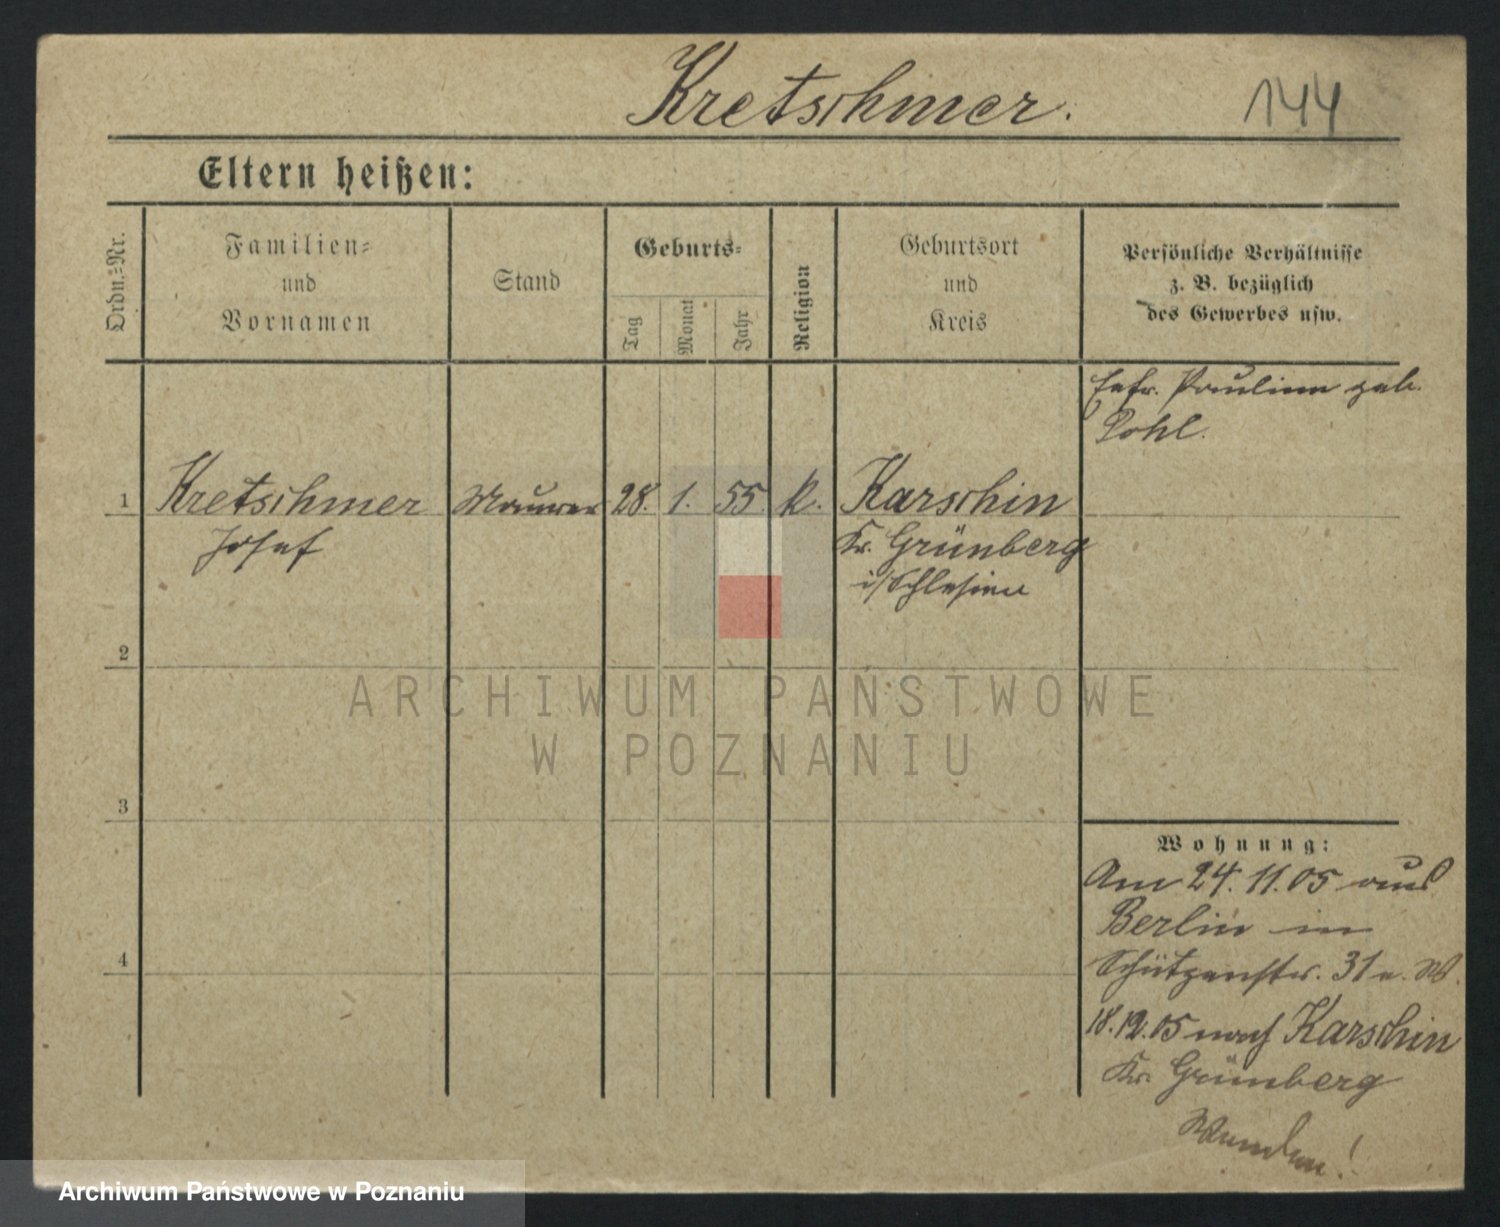 Kretschmer.
144
Eltern heißen:
Ordn.-Nr.
Familien-
und
Vornamen
Stand
Geburts-
Tag
Monat
Jahr
Religion
Geburtsort
und
Kreis
Persönliche Verhältnisse
z. B. bezüglich
des Gewerbes usw.
Ehfr. Pauline geb.
Pohl.
1
Kretschmer
Josef
Maurer
28.
1.
55.
k.
Karschin
Kr. Grünberg
i/Schlesien
2
3
4
ARCHIWUM PAŃSTWOWE
W POZNANIU
Wohnung:
Am 24. 11. 05 aus
Berlin in
Schützenstr. 31a. W.
18.12.05 nach Karschin
Kr. Grünberg
Wenden!
Archiwum Państwowe w Poznaniu